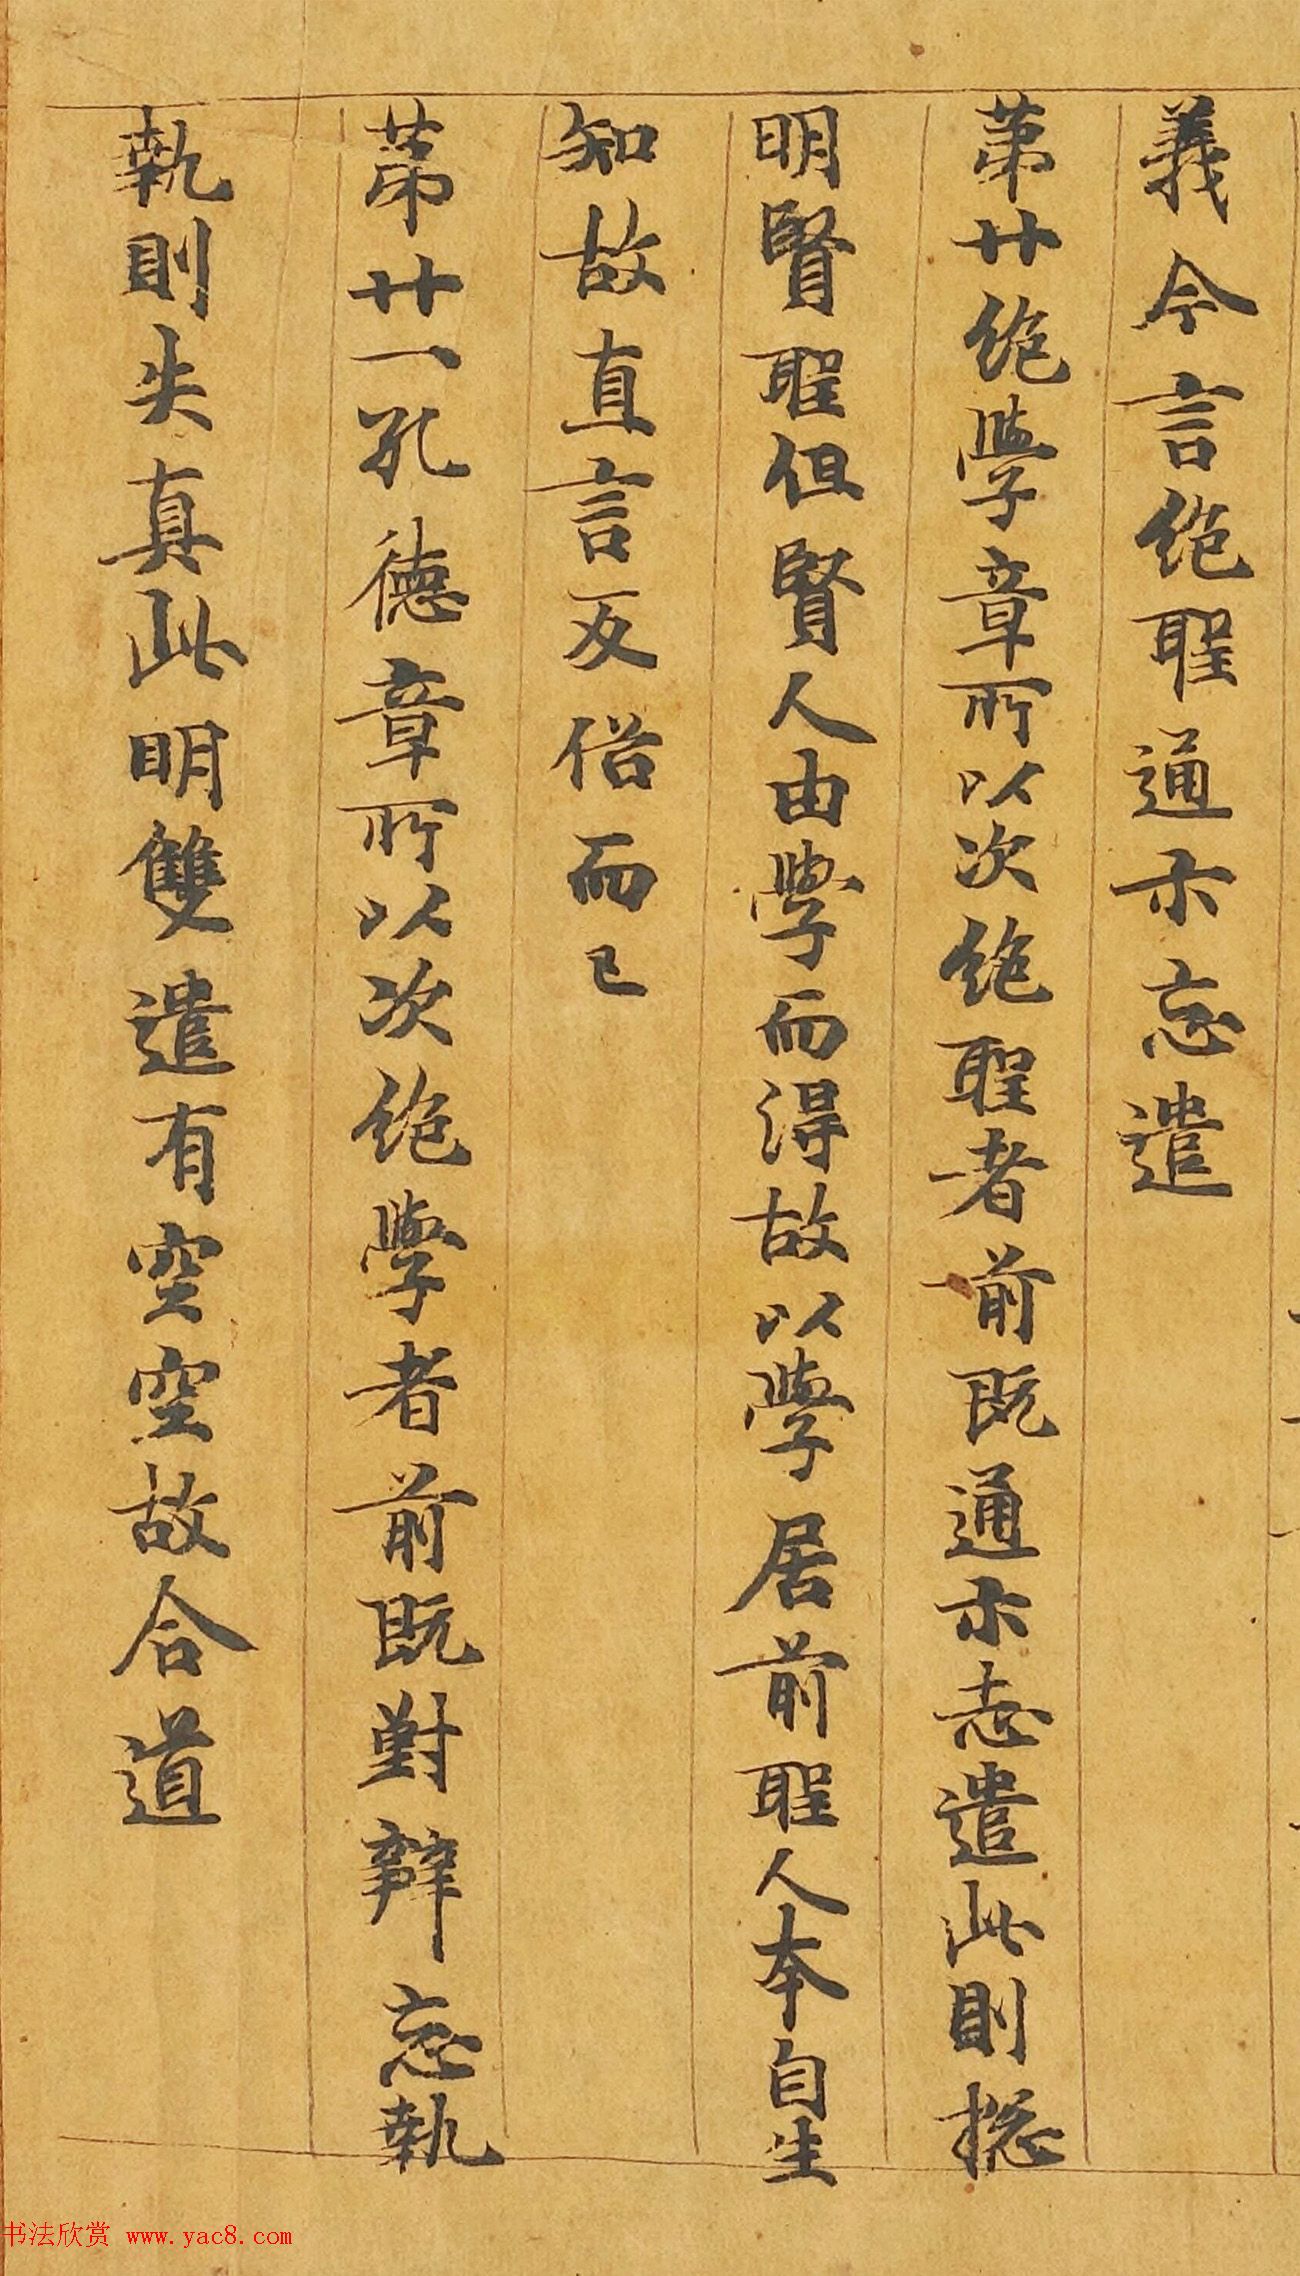 義今言絶聖通亦忘遣
苐廿絶學章所以次絶聖者前既通亦志遣此則揔
明賢聖但賢人由學而得故以學居前聖人本自生
知故直言反俗而已
苐廿一孔德章所以次絶學者前既對辯忘執
執則失真此明雙遣有空空故合道
书法欣赏 www.yac8.com